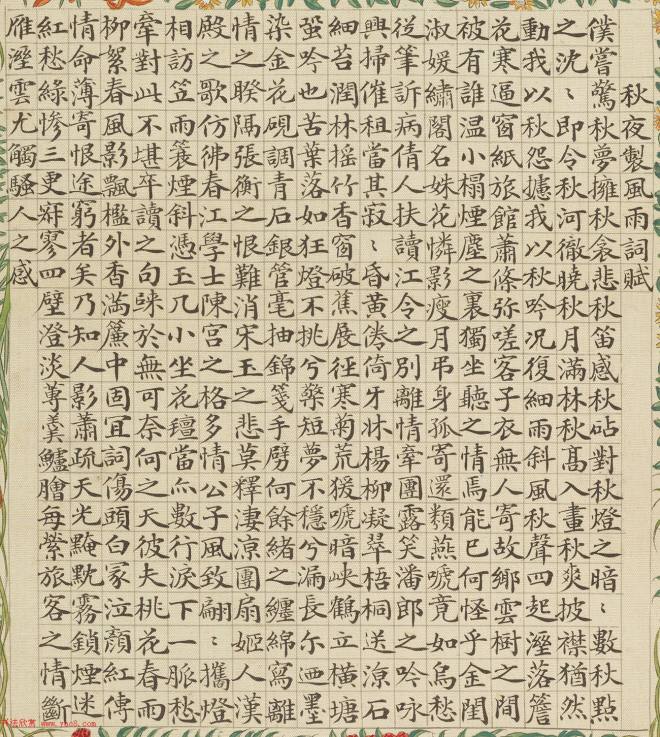 秋夜製風雨詞賦
僕嘗驚秋夢擁秋衾悲秋笛感秋砧對秋燈之暗〻數秋點
之沈〻即令秋河徹曉秋月滿林秋高入畫秋爽披襟猶然
動我以秋怨攄我以秋吟况復細雨斜風秋聲四起溼落簷
花寒逼窗紙旅館蕭條弥嗟客子衣無人寄故鄉雲樹之間
被有誰温小榻煙塵之裏獨坐聽之情焉能已何怪乎金閨
淑媛繡閣名姝花憐影瘦月弔身孤寄還類燕唬竟如烏愁
從筆訴病倩人扶讀江令之別離情牽團露笑潘郎之吟咏
興掃催租當其寂〻昏黃倦倚牙牀楊柳凝翠梧桐送涼石
細苔潤林摇竹香窗破蕉展徑寒菊荒猨唬暗峽鶴立横塘
蛩吟也苦葉落如狂燈不挑兮檠短夢不穩兮漏長尒迺墨
染金花硯調青石銀管毫抽錦箋手劈何餘緒之纏綿寫離
情之睽隔張衡之恨難消宋玉之悲莫釋淒涼團扇姬人漢
殿之歌仿彿春江學士陳宮之格多情公子風致翩〻攜燈
相訪笠雨簑煙斜憑玉几小坐花氊當亦數行淚下一脈愁
牽對此不堪卒讀之句於無可奈何之天彼夫桃花春雨
柳絮春風影飄檻外香滿簾中固宜詞傷頭白冢泣顏紅傳
情命薄寄恨途窮者矣乃知人影蕭疏天光黤黕霧鎖煙迷
紅愁綠慘三更寂寥四壁澄淡蓴羹鱸膾每縈旅客之情斷
雁溼雲尤觸騷人之感
书法欣赏 www.yac8.com